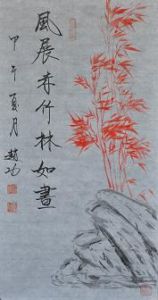 風展赤竹林如畫
甲午夏月